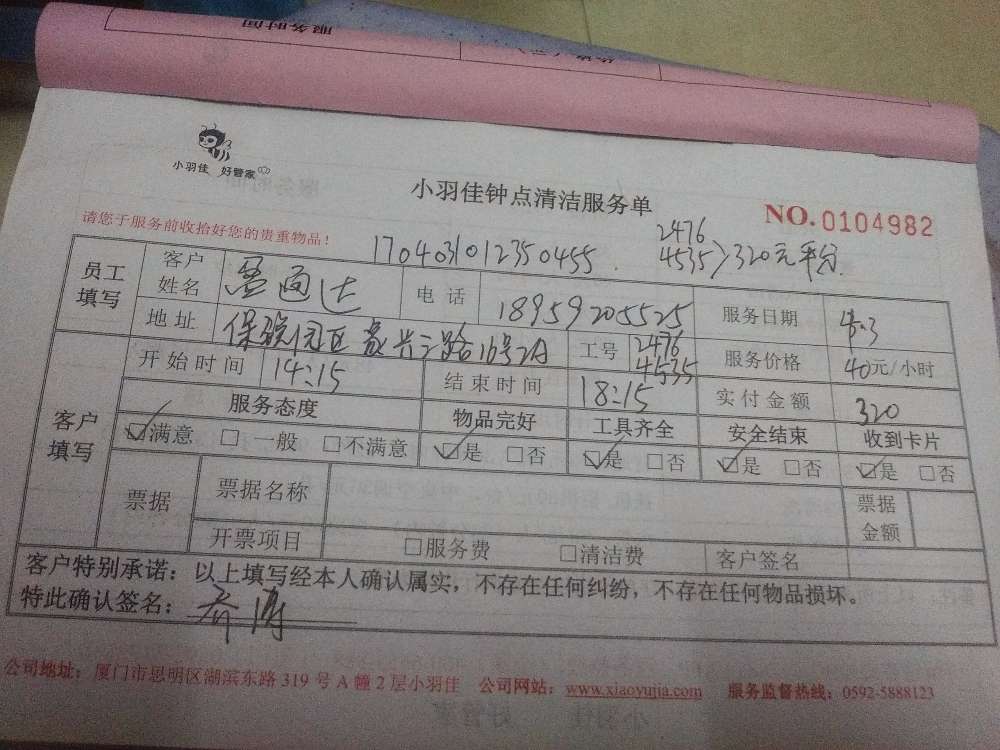 服务时间
小羽佳 好管家
小羽佳钟点清洁服务单
NO.0104982
请您于服务前收拾好您的贵重物品！
1704031012350455.
2476
4535 >320元平分.
员工填写 客户姓名 电话 18959205525 服务日期 4.3
地址 保税园区 路16号2A 工号 2476 4535 服务价格 40元/小时
客户填写 开始时间 14:15 结束时间 18:15 实付金额 320
服务态度 物品完好 工具齐全 安全结束 收到卡片
☑满意 □一般 □不满意 ☑是 □否 ☑是 □否 ☑是 □否 ☑是 □否
票据 票据名称 票据金额
开票项目 □服务费 □清洁费 客户签名
客户特别承诺：以上填写经本人确认属实，不存在任何纠纷，不存在任何物品损坏。
特此确认签名：
公司地址：厦门市思明区湖滨东路 319 号 A 幢 2 层小羽佳 公司网站：www.xiaoyujia.com 服务监督热线：0592-5888123